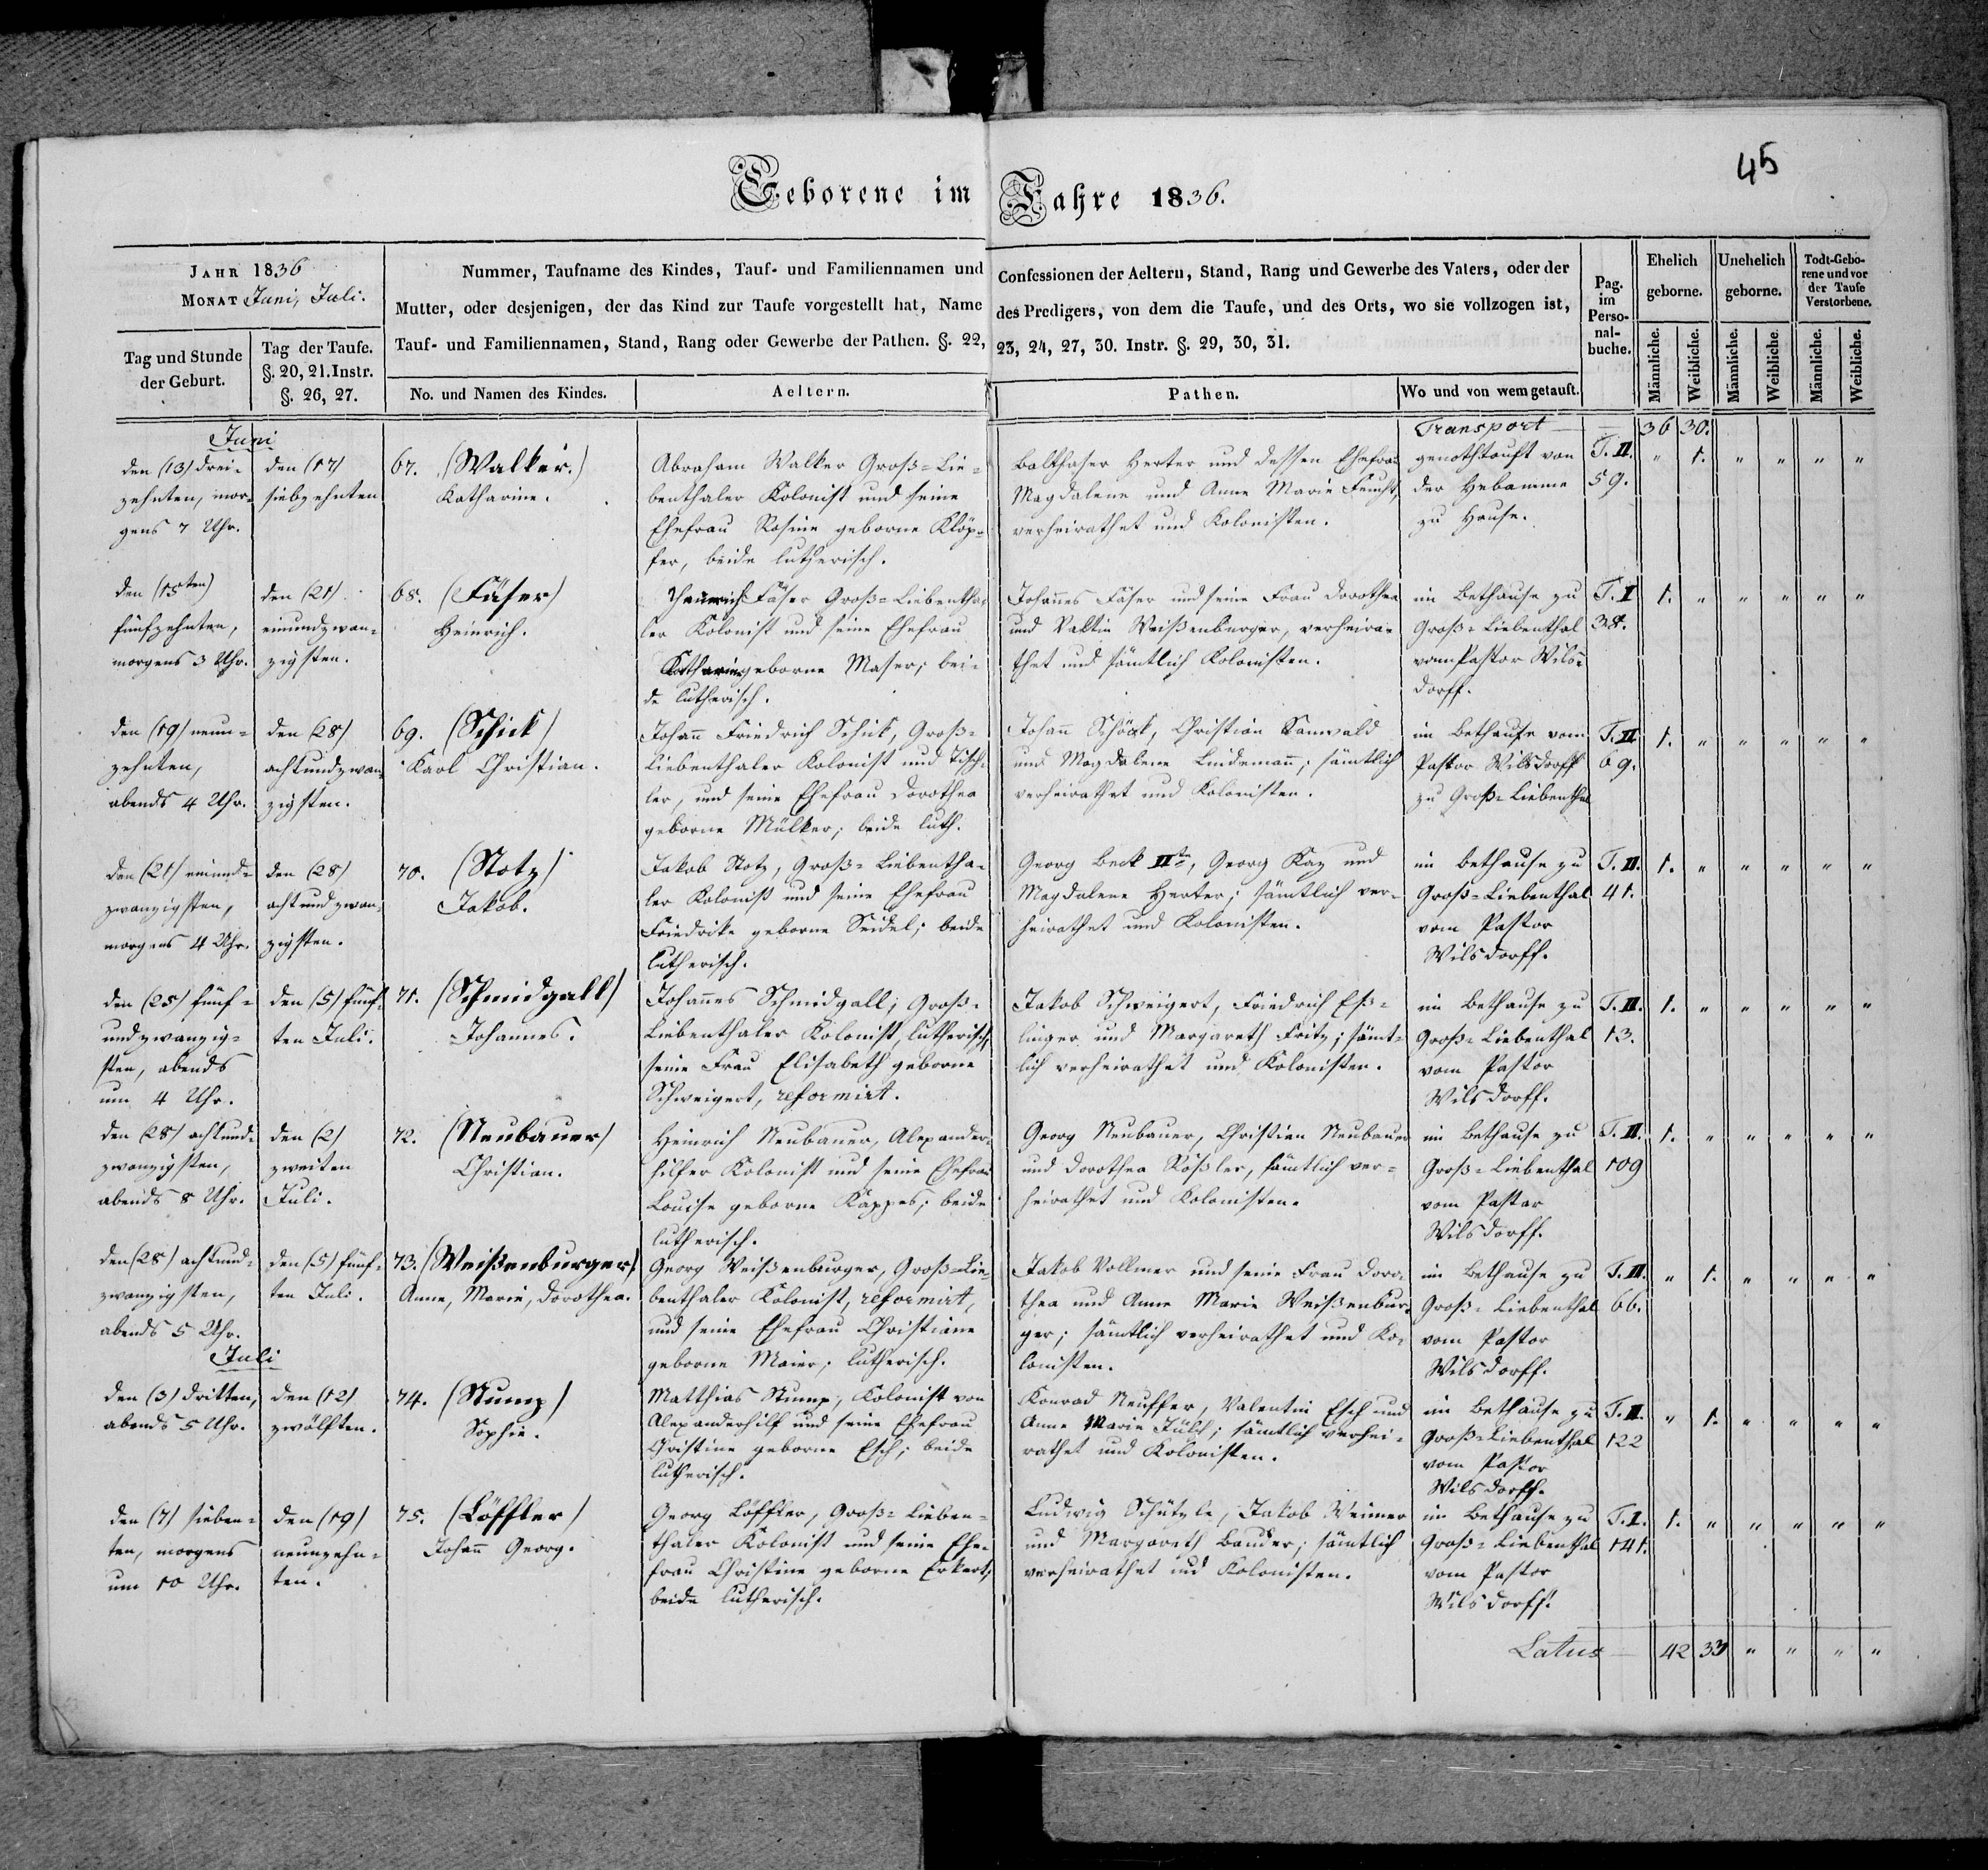 45
Geborene im Jahre 1836.
JAHR 1836
MONAT Juni, Juli.
Tag und Stunde
der Geburt.
Tag der Taufe.
§. 20, 21. Instr.
§. 26, 27.
Nummer, Taufname des Kindes, Tauf- und Familiennamen und Confessionen der Aeltern, Stand, Rang und Gewerbe des Vaters, oder der
Mutter, oder desjenigen, der das Kind zur Taufe vorgestellt hat, Name des Predigers, von dem die Taufe, und des Orts, wo sie vollzogen ist,
Tauf- und Familiennamen, Stand, Rang oder Gewerbe der Pathen. §. 22, 23, 24, 27, 30. Instr. §. 29, 30, 31.
No. und Namen des Kindes.
Aeltern.
Pathen.
Wo und von wem getauft.
Pag.
im
Perso-
nal-
buche.
Ehelich
geborne.
Unehelich
geborne.
Todt-Gebo-
rene und vor
der Taufe
Verstorbene.
Männliche.
Weibliche.
Männliche.
Weibliche.
Männliche.
Weibliche.
Transport — 36 30.
Juni
den (13) drei-
zehnten, mor-
gens 7 Uhr.
den (17)
siebzehnten
67. (Walker.)
Katharine.
Abraham Walker Groß-Lie-
benthaler Kolonist und seine
Ehefrau Rosine geborne Klöp-
fer, beide lutherisch.
Balthaser Herter und dessen Ehefrau
Magdalene und Anne Marie Feucht,
verheirathet und Kolonisten.
genothtauft von
der Hebamme
zu Hause.
T. II.
59.
" 1. " " " "
den (15ten)
fünfzehnten,
morgens 3 Uhr.
den (21)
einundzwan-
zigsten.
68. (Fäser)
Heinrich.
Heinrich Fäser Groß-Liebentha-
ler Kolonist und seine Ehefrau
Katharine geborne Maser; bei-
de lutherisch.
Johannes Fäser und seine Frau Dorothea
und Valtin Weißenburger, verheira-
thet und sämtlich Kolonisten.
im Bethause zu
Groß-Liebenthal
vom Pastor Wils-
dorff.
T. I
34.
1. " " " " "
den (19) neun-
zehnten,
abends 4 Uhr.
den (28)
achtundzwan-
zigsten.
69. (Schick)
Karl Christian.
Johann Friedrich Schick, Groß-
Liebenthaler Kolonist und Tisch-
ler, und seine Ehefrau Dorothea
geborne Mülker; beide luth.
Johann Schöck, Christian Sanwald
und Magdalene Lindemann; sämtlich
verheirathet und Kolonisten.
im Bethause vom
Pastor Wilsdorff
zu Groß-Liebenthal
T. II
69.
1. " " " " "
den (21) einund-
zwanzigsten,
morgens 4 Uhr.
den (28)
achtundzwan-
zigsten.
70. (Stotz)
Jakob.
Jakob Stotz, Groß-Liebentha-
ler Kolonist und seine Ehefrau
Friedrike geborne Seidel; beide
lutherisch.
Georg Beck IIte, Georg Kaz und
Magdalene Herter; sämtlich ver-
heirathet und Kolonisten.
im Bethause zu
Groß-Liebenthal
vom Pastor
Wilsdorff.
T. II.
41.
1. " " " " "
den (25) fünf-
undzwanzig-
sten, abends
um 4 Uhr.
den (5) fünf-
ten Juli.
71. (Schmidgall)
Johannes.
Johannes Schmidgall; Groß-
Liebenthaler Kolonist, lutherisch,
seine Frau Elisabeth geborne
Schweigert, reformirt.
Jakob Schweigert, Friedrich Eß-
linger und Margareth Fritz; sämt-
lich verheirathet und Kolonisten.
im Bethause zu
Groß-Liebenthal
vom Pastor
Wilsdorff.
T. II.
13.
1. " " " " "
den (28) achtund-
zwanzigsten,
abends 8 Uhr.
den (2)
zweiten
Juli.
72. (Neubauer)
Christian.
Heinrich Neubauer, Alexander-
hilfer Kolonist und seine Ehefrau
Louise geborne Kappes; beide
lutherisch.
Georg Neubauer, Christian Neubauer
und Dorothea Rößler, sämtlich ver-
heirathet und Kolonisten.
im Bethause zu
Groß-Liebenthal
vom Pastor
Wilsdorff.
T. II.
109
1. " " " " "
den (28) achtund-
zwanzigsten,
abends 5 Uhr.
den (5) fünf-
ten Juli.
73. (Weißenburger)
Anne, Marie, Dorothea.
Georg Weißenburger, Groß-Lie-
benthaler Kolonist, reformirt,
und seine Ehefrau Christiane
geborne Maier; lutherisch.
Jakob Vollmer und seine Frau Doro-
thea und Anne Marie Weißenbur-
ger; sämtlich verheirathet und Ko-
lonisten.
im Bethause zu
Groß-Liebenthal
vom Pastor
Wilsdorff.
T. II.
66.
" 1. " " " "
Juli
den (3) dritten,
abends 5 Uhr.
den (12)
zwölften.
74. (Stump)
Sophie.
Matthias Stump, Kolonist von
Alexanderhilf und seine Ehefrau
Christine geborne Esch; beide
lutherisch.
Konrad Neuffer, Valentin Esch und
Anne Marie Fülch; sämtlich verhei-
rathet und Kolonisten.
im Bethause zu
Groß-Liebenthal
vom Pastor
Wilsdorff.
T. II.
122
" 1. " " " "
den (7) sieben-
ten, morgens
um 10 Uhr.
den (19)
neunzehn-
ten.
75. (Löffler)
Johann Georg.
Georg Löffler, Groß-Lieben-
thaler Kolonist und seine Ehe-
frau Christine geborne Erkert;
beide lutherisch.
Ludwig Schützle, Jakob Weimer
und Margareth Bauder; sämtlich
verheirathet und Kolonisten.
im Bethause zu
Groß-Liebenthal
vom Pastor
Wilsdorff.
T. I.
141.
1. " " " " "
Latus — 42 33 " " " "